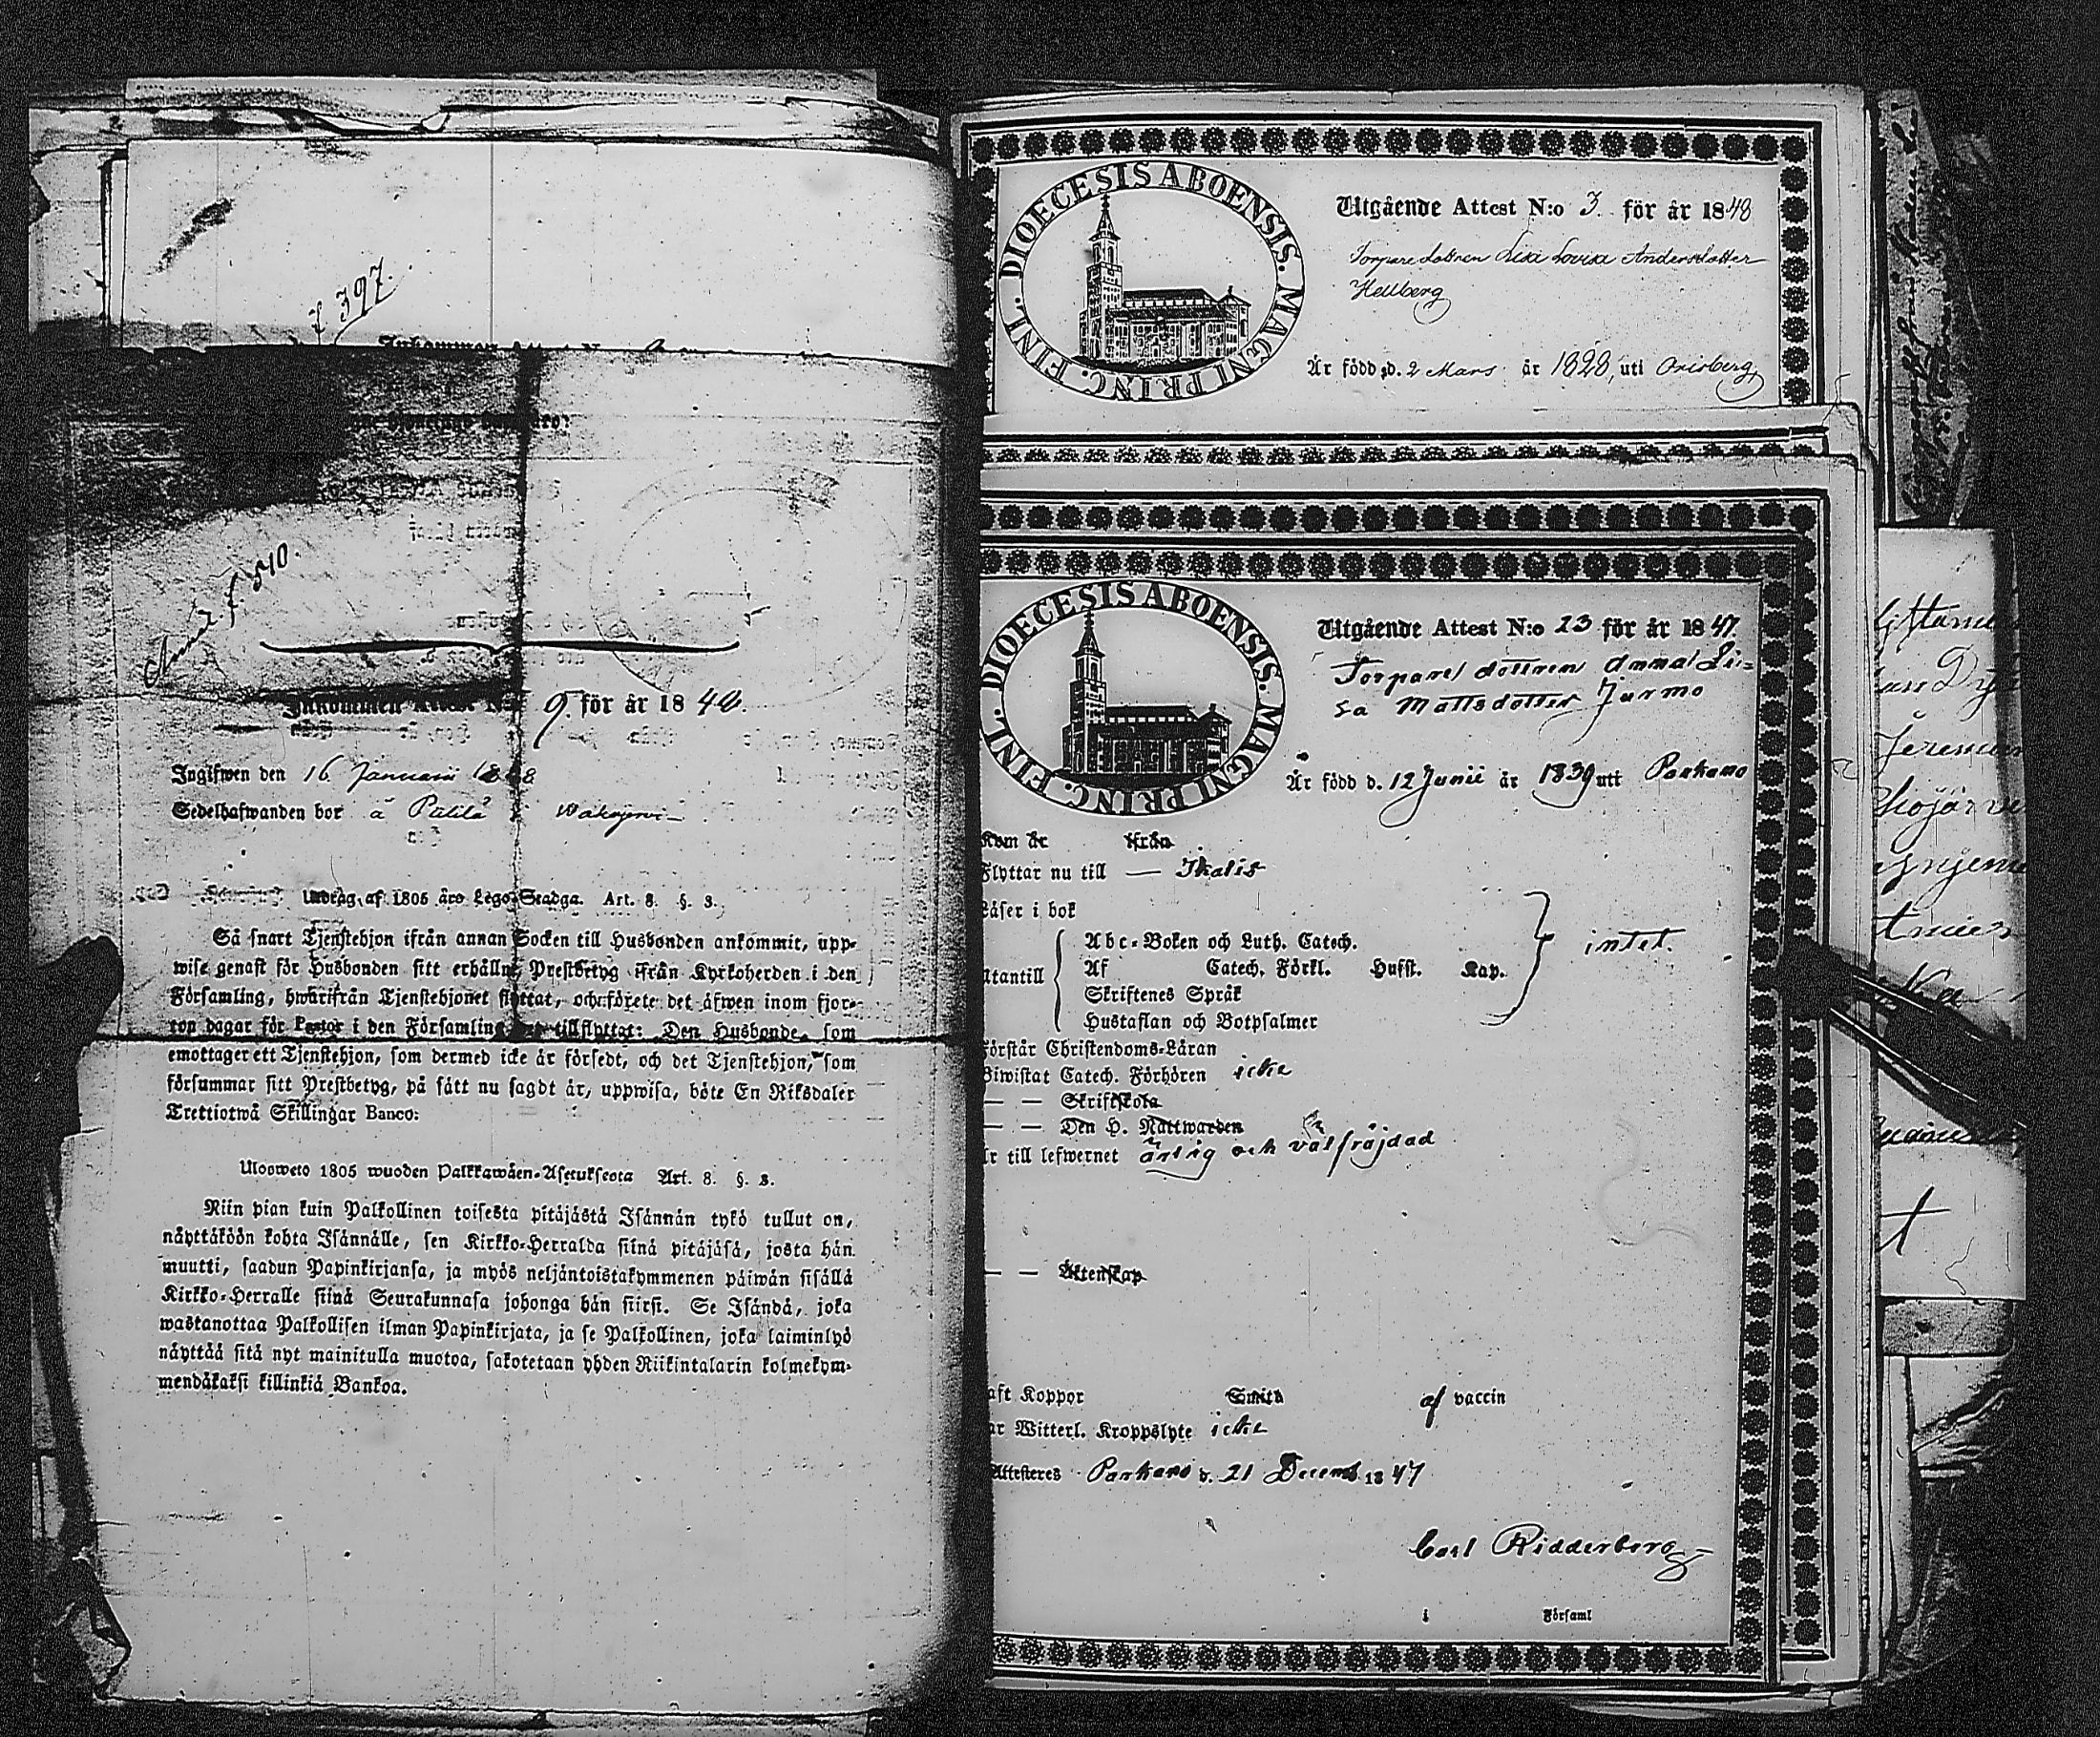 f 397
Inkommen
Annot f. 540.
Inkommen Attest N:o 9. för år 1848.
Ingifwen den 16 Januarii 1848
Sedelhafwanden bor å
Utdrag af 1805 års Lego-Stadga. Art. 8. §. 3.
Så snart Tjenstehjon ifrån annan Socken till Husbonden ankommit, upp-
wise genast för Husbonden sitt erhållne Prestbetyg ifrån Kyrkoherden i den
Församling, hwarifrån Tjenstehjonet flyttat, och förete det äfwen inom fjor-
ton dagar för Pastor i den Församling det tillflyttat: Den Husbonde, som
emottager ett Tjenstehjon, som dermed icke är försedt, och det Tjenstehjon, som
försummar sitt Prestbetyg, på sätt nu sagdt är, uppwisa, böte En Riksdaler
Trettiotwå Skillingar Banco.
Ulosweto 1805 wuoden Palkkawäen-Asetuksesta Art. 8. §. 3.
Niin pian kuin Palkollinen toisesta pitäjästä Isännän tykö tullut on,
näyttäköön kohta Isännälle, sen Kirkko-Herralda siinä pitäjäsä, josta hän
muutti, saadun Papinkirjansa, ja myös neljäntoistakymmenen päiwän sisällä
Kirkko-Herralle siinä Seurakunnasa johonga hän siirsi. Se Isändä, joka
wastanottaa Palkollisen ilman Papinkirjata, ja se Palkollinen, joka laiminlyö
näyttää sitä nyt mainitulla muotoa, sakotetaan yhden Riikintalarin kolmekym-
mendäkaksi killinkiä Bankoa.
DIOECESIS ABOENSIS. MAGNI PRINC. FINL.
Utgående Attest N:o 3. för år 1848
Torpare dottren Lisa Lovisa Andersdotter
Hellberg
Är född d. 2 Mars år 1828, uti Orisberg
DIOECESIS ABOENSIS. MAGNI PRINC. FINL.
Utgående Attest N:o 23 för år 1847.
Torpare dottren Anna Li-
sa Mattsdotter Jurmo
Är född d. 12 Junii år 1839 uti Parkano
Kom år ifrån
Flyttar nu till — Ikalis
Läser i bok
Utantill
Abc-Boken och Luth. Catech.
Af Catech. Förkl. Hufst. Kap.
intet.
Skriftenes Språk
Hustaflan och Botpsalmer
Förstår Christendoms-Läran
Biwistat Catech. Förhören icke
— — Skriftskola
— — Den H. Nattwarden
Är till lefwernet ärlig och välfräjdad
— — Äktenskap
haft Koppor Smitt af vaccin
har Witterl. Kroppslyte icke
Attesteres Parkano d. 21 Decemb 1847
Carl Ridderberg
i Församl